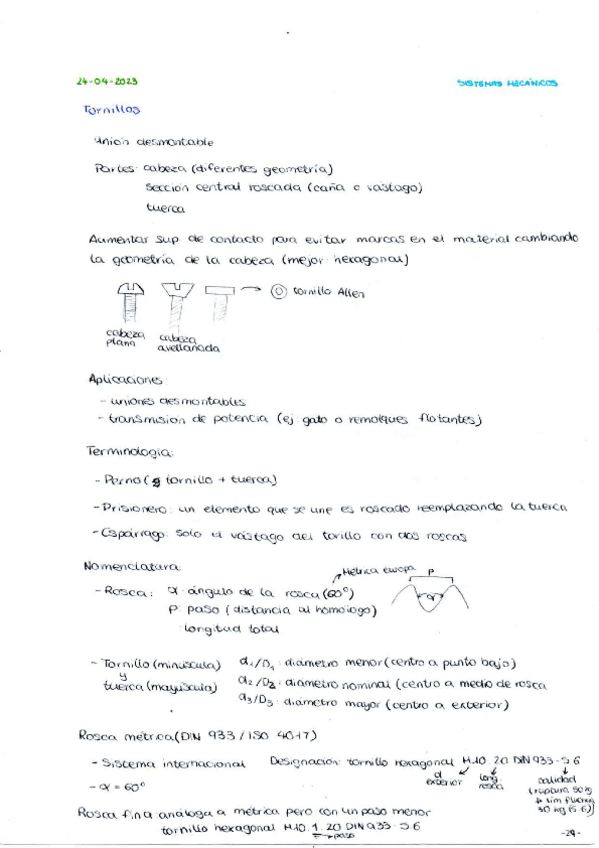 24-04-2023
SISTEMAS MECÁNICOS
Tornillos
Unión desmontable
Partes: cabeza (diferentes geometría)
sección central roscada (caña o vástago)
tuerca
Aumentar sup de contacto para evitar marcas en el material cambiando
la geometría de la cabeza (mejor: hexagonal)
tornillo Allen
cabeza plana
cabeza avellanada
Aplicaciones:
- uniones desmontables
- transmisión de potencia (ej: gato o remolques flotantes)
Terminología:
- Perno ( tornillo + tuerca)
- Prisionero: un elemento que se une es roscado reemplazando la tuerca
- Espárrago: solo el vástago del torillo con dos roscas
Nomenclatura:
Métrica europa
P
- Rosca: α: ángulo de la rosca (60°)
α
P: paso (distancia al homólogo)
longitud total
- Tornillo (minúscula) d₁/D₁: diámetro menor (centro a punto bajo)
y
tuerca (mayúscula) d₂/D₂: diámetro nominal (centro a medio de rosca
d₃/D₃: diámetro mayor (centro a exterior)
Rosca métrica (DIN 933 / ISO 4017)
- Sistema internacional Designación: tornillo hexagonal M10.20 DIN 933-5.6
d exterior
long rosca
calidad
(ruptura 50 kg
- α = 60°
+ lim fluencia
30 kg (5.6))
Rosca fina: análoga a métrica pero con un paso menor
tornillo hexagonal M10.1.20 DIN 933-5.6
paso
-29-